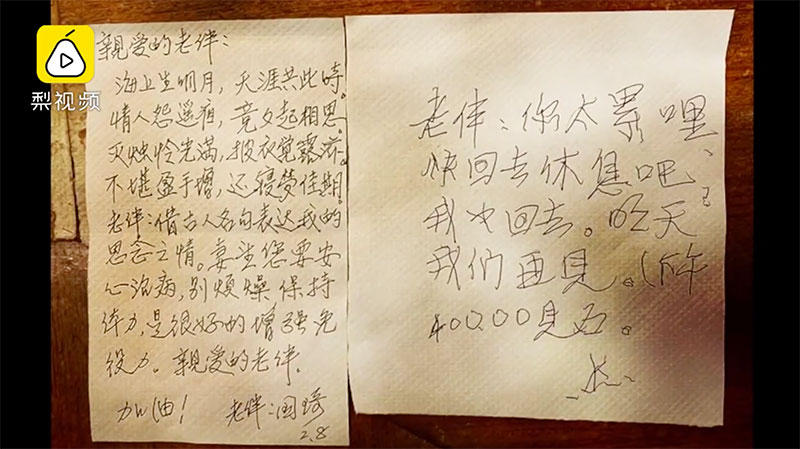 梨视频
親爱的老伴：
海上生明月，天涯共此時。
情人怨遥夜，竟夕起相思。
灭烛怜光满，披衣觉露滋。
不堪盈手增，还寝梦佳期。
老伴：借古人名句表达我的
思念之情。您要安
心治病，别煩燥保持
体力，是很好的增强免
役力。親爱的老伴，
加油！ 老伴：国琦
2.8
老伴：你太累哩、
快回去休息吧、
我也回去。明天
我们再見。（下午
400.00見